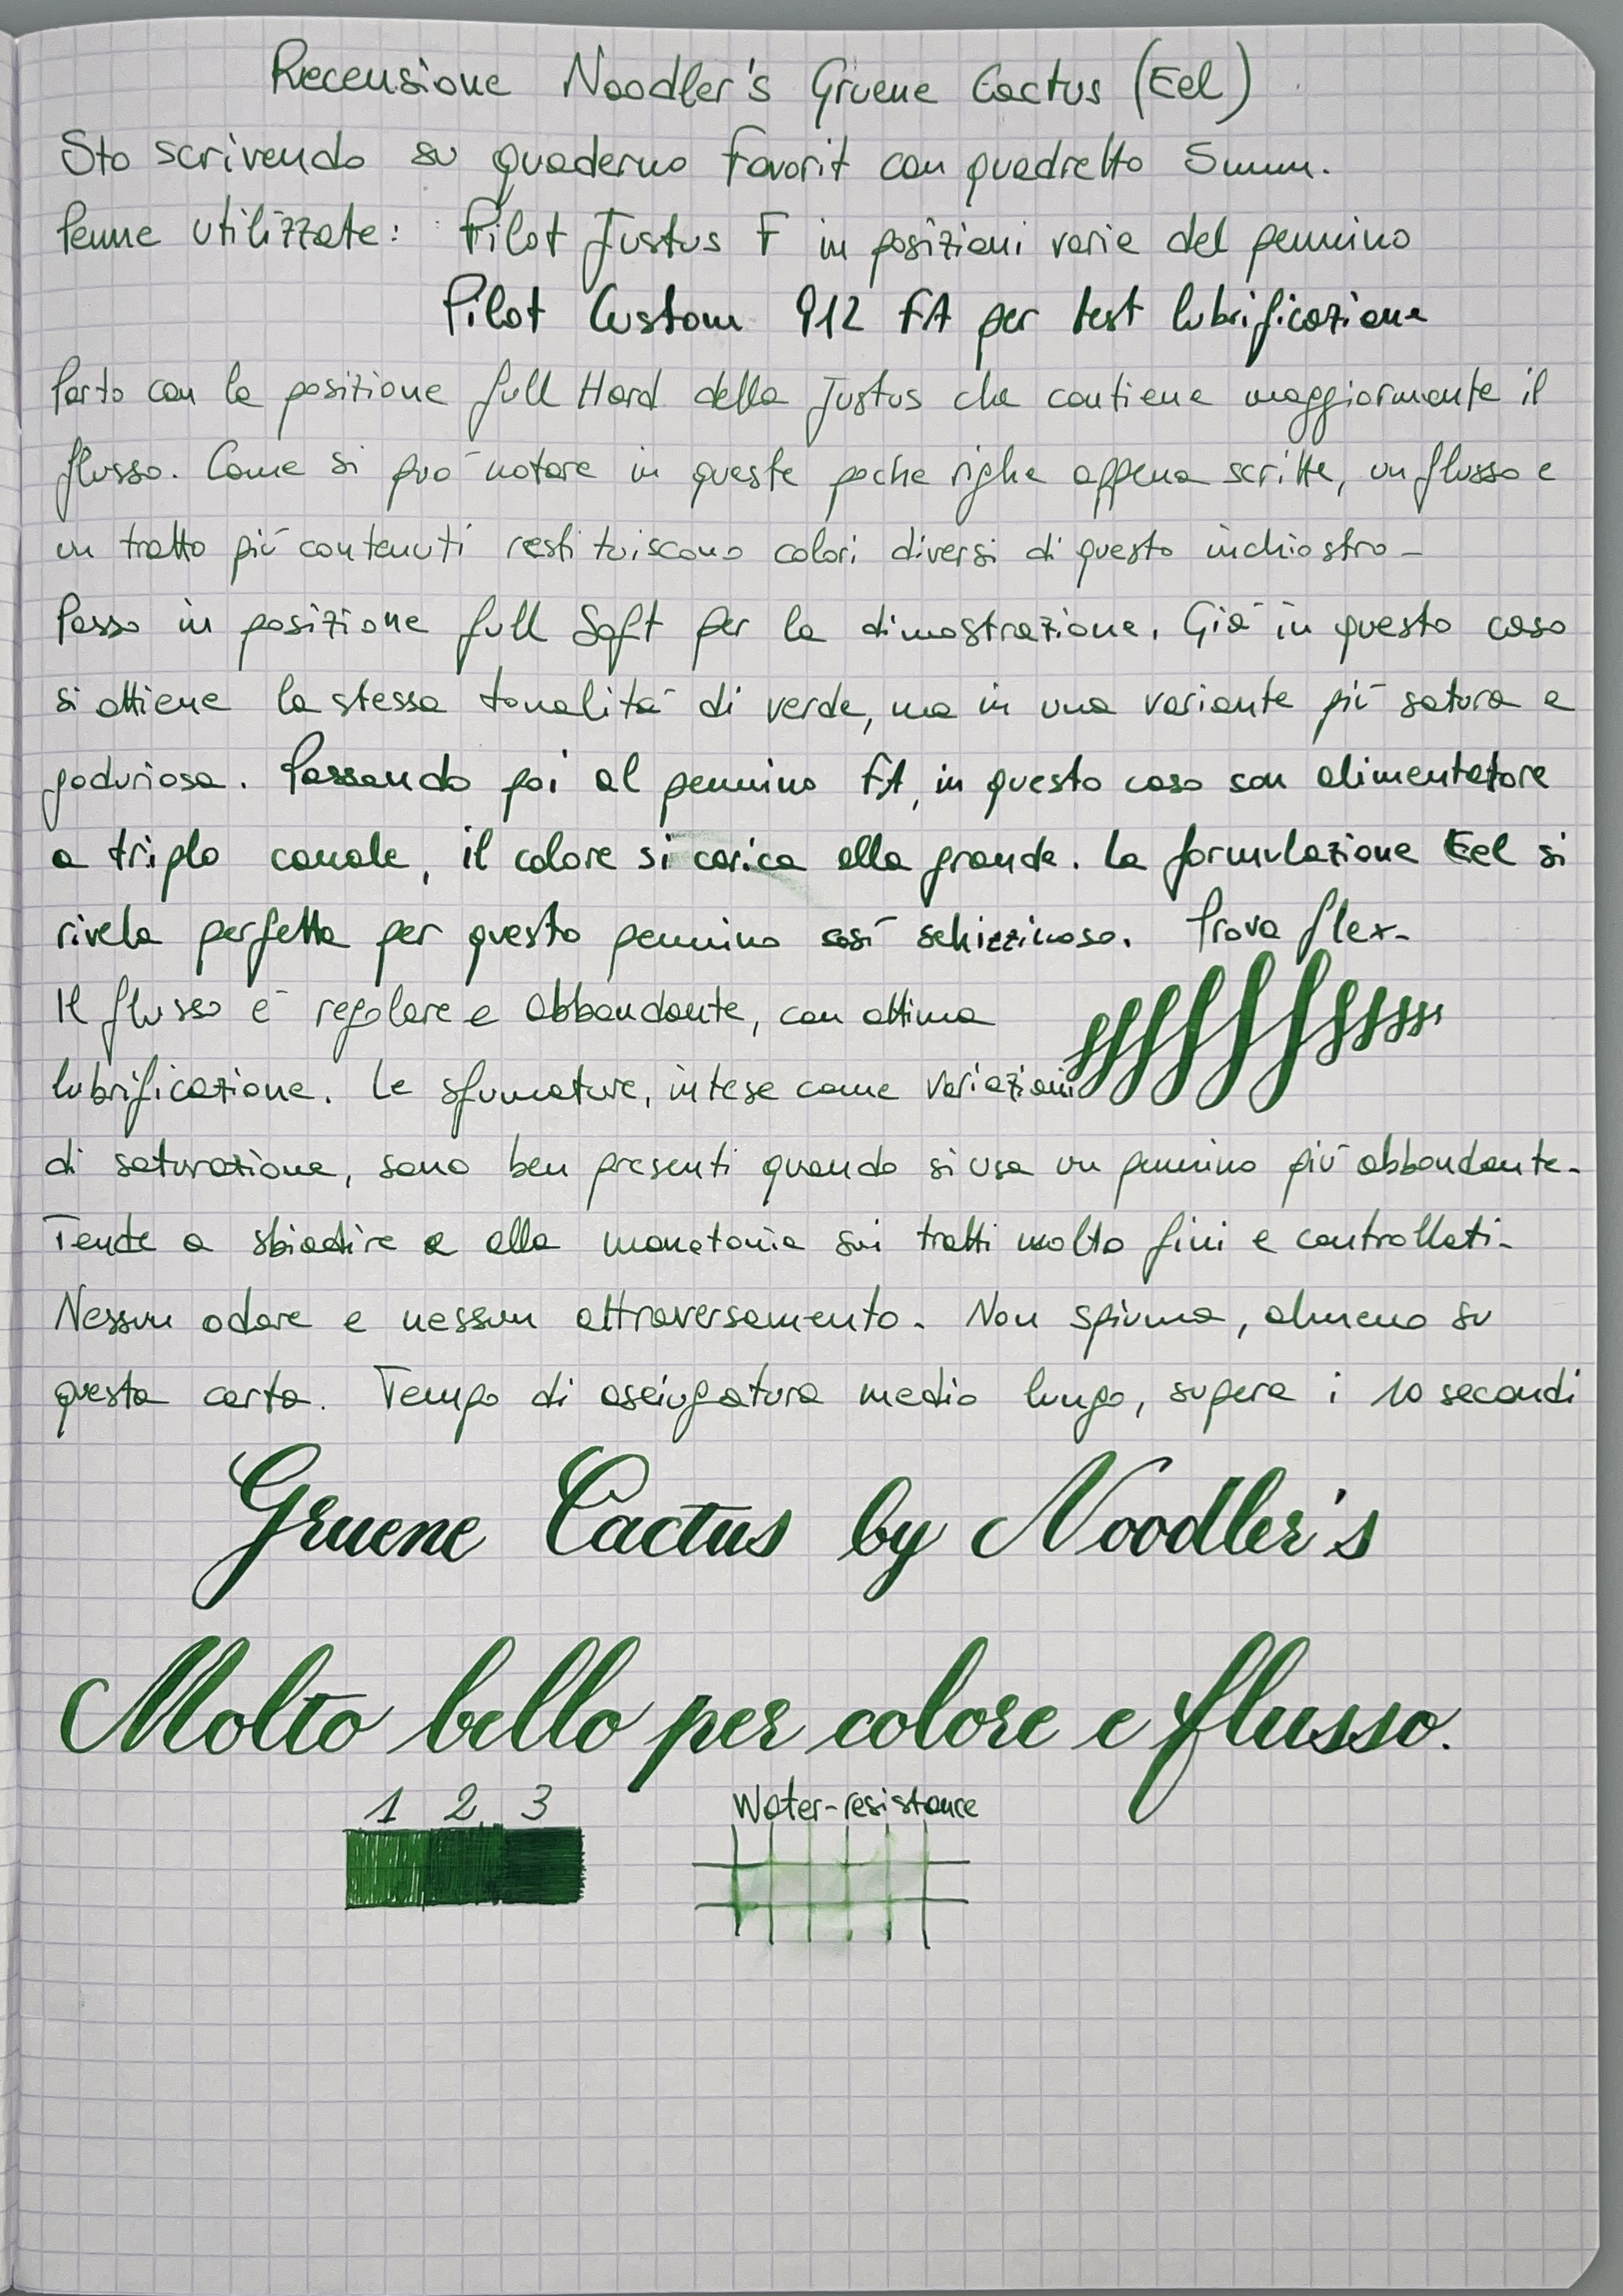 Recensione Noodler's Gruene Cactus (Eel)
Sto scrivendo su quaderno Favorit con quadretto 5mm.
Penne utilizzate: Pilot Justus F in posizioni varie del pennino
Pilot Custom 912 FA per test lubrificazione
Parto con la posizione full Hard della Justus che contiene maggiormente il
flusso. Come si può notare in queste poche righe appena scritte, un flusso e
un tratto più contenuti restituiscono colori diversi di questo inchiostro.
Passo in posizione full Soft per la dimostrazione. Già in questo caso
si ottiene la stessa tonalità di verde, ma in una variante più satura e
goduriosa. Passando poi al pennino FA, in questo caso con alimentatore
a triplo canale, il colore si carica alla grande. La formulazione Eel si
rivela perfetta per questo pennino così schizzinoso. Prova flex.
Il flusso è regolare e abbondante, con ottima
lubrificazione. Le sfumature, intese come variazioni
di saturazione, sono ben presenti quando si usa un pennino più abbondante.
Tende a sbiadire e alla monotonia sui tratti molto fini e controllati.
Nessun odore e nessun attraversamento. Non spiuma, almeno su
questa carta. Tempo di asciugatura medio lungo, supera i 10 secondi
Gruene Cactus by Noodler's
Molto bello per colore e flusso.
1 2 3 Water-resistance